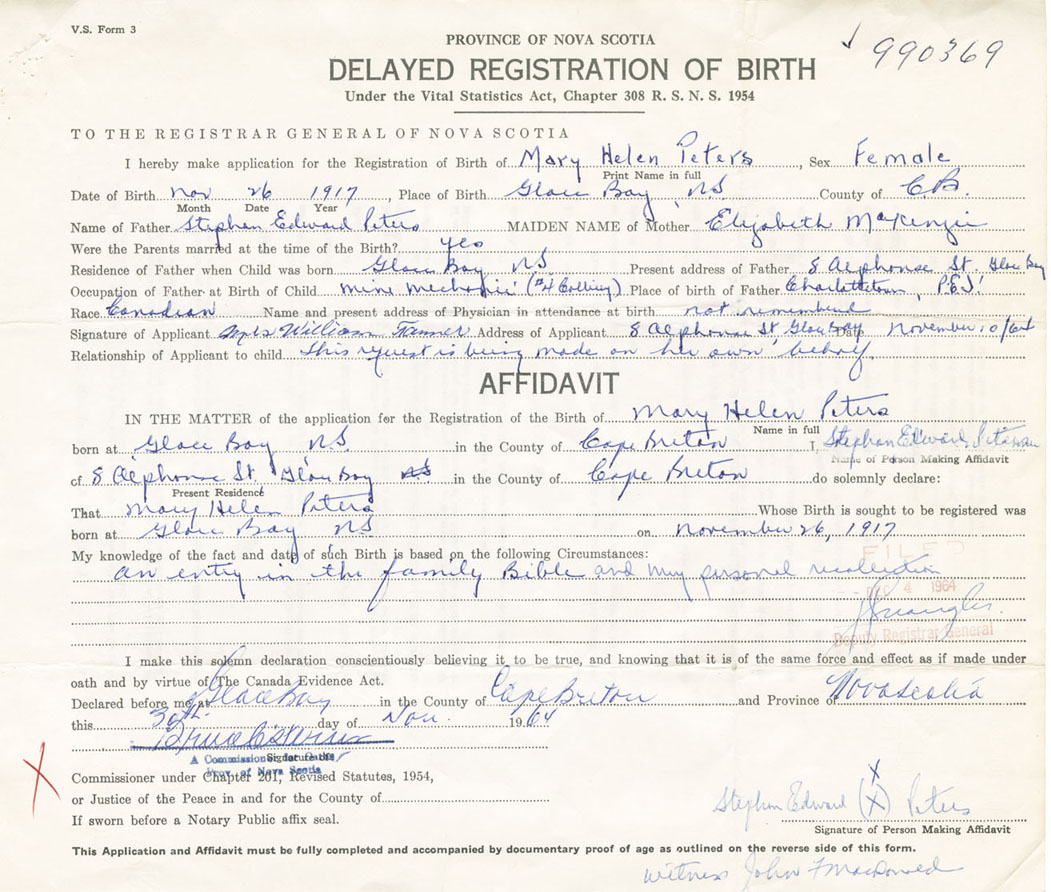 V.S. Form 3
990369
PROVINCE OF NOVA SCOTIA
DELAYED REGISTRATION OF BIRTH
Under the Vital Statistics Act, Chapter 308 R. S. N. S. 1954
TO THE REGISTRAR GENERAL OF NOVA SCOTIA
I hereby make application for the Registration of Birth of Mary Helen Peters, Sex Female
Print Name in full
Date of Birth Nov 26 1917, Place of Birth Glace Bay, NS County of C.B.
Month Date Year
Name of Father Stephen Edward Peters MAIDEN NAME of Mother Elizabeth McKenzie
Were the Parents married at the time of the Birth? yes
Residence of Father when Child was born Glace Bay NS Present address of Father 8 Alphonse St. Glace Bay
Occupation of Father at Birth of Child Mine Mechanic (#4 Colliery) Place of birth of Father Charlottetown, P.E.I.
Race Canadian Name and present address of Physician in attendance at birth not remembered
Signature of Applicant Mrs William Tanner Address of Applicant 8 Alphonse St, Glace Bay November
Relationship of Applicant to child This request is being made on her own behalf.
AFFIDAVIT
IN THE MATTER of the application for the Registration of the Birth of Mary Helen Peters
Name in full
born at Glace Bay, N.S. in the County of Cape Breton I, Stephen Edward
Name of Person Making Affidavit
of 8 Alphonse St. Glace Bay NS in the County of Cape Breton do solemnly declare:
Present Residence
That Mary Helen Peters Whose Birth is sought to be registered was
born at Glace Bay NS on November 26, 1917
My knowledge of the fact and date of such Birth is based on the following Circumstances:
an entry in the family Bible and my personal recollection
FILED
4 1964
Deputy Registrar General
I make this solemn declaration conscientiously believing it to be true, and knowing that it is of the same force and effect as if made under
oath and by virtue of The Canada Evidence Act.
Declared before me at Glace Bay in the County of Cape Breton and Province of Nova Scotia
this 30th day of Nov. 1964
A Commissioner for Oaths
Signature of
Prov. of Nova Scotia
Commissioner under Chapter 201, Revised Statutes, 1954,
or Justice of the Peace in and for the County of
If sworn before a Notary Public affix seal.
Stephen Edward (X) Peters
Signature of Person Making Affidavit
This Application and Affidavit must be fully completed and accompanied by documentary proof of age as outlined on the reverse side of this form.
Witness John F MacDonald